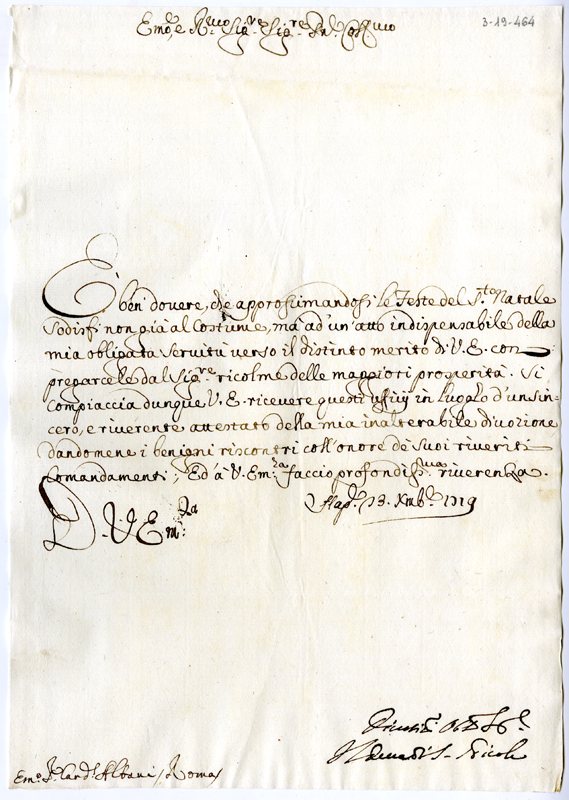 Em.mo, e R.mo Sig.re Sig.re P.ne Col.mo
3-19-464
E' ben douere, che approssimandosi le Feste del S.to Natale
sodisfi non già al costume, mà ad' un' atto indispensabile della
mia obligata seruitù uerso il distinto merito di V. E. con
pregarcele dal Sig.re ricolme delle maggiori prosperità. Si
compiaccia dunque V. E. riceuere questi uffizij in luogo d'un sin=
cero, e riuerente attestato della mia inalterabile diuozione
dandomene i benigni riscontri coll'onore de suoi riueriti
comandamenti; Ed à V. Em.za faccio profondiss.ma riuerenza.
Nap. 13. Xmb.e 1719
D. V. Em.za
Em.o S. Card.l Albani / Roma